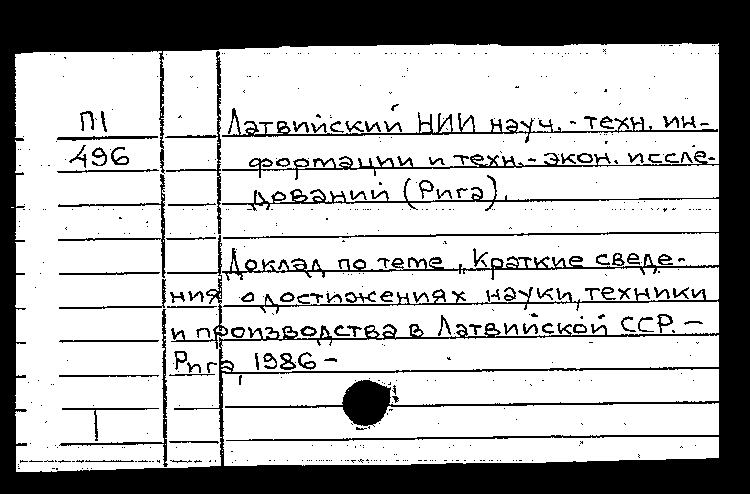 П1
496
Латвийский НИИ науч.-техн. ин-
формации и техн.-экон. иссле-
дований (Рига).
Доклад по теме „Краткие сведе-
ния о достижениях науки, техники
и производства в Латвийской ССР. –
Рига, 1986 –